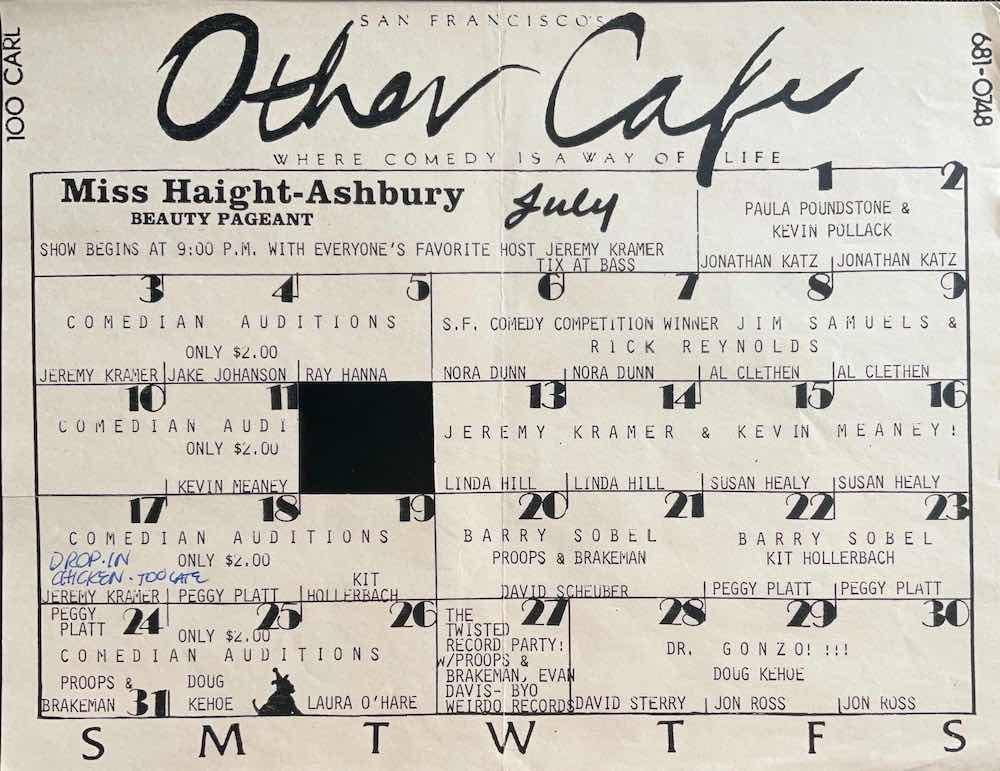 SAN FRANCISCO'S
Other Cafe
100 CARL
681-0748
WHERE COMEDY IS A WAY OF LIFE
Miss Haight-Ashbury
BEAUTY PAGEANT
July
SHOW BEGINS AT 9:00 P.M. WITH EVERYONE'S FAVORITE HOST JEREMY KRAMER
TIX AT BASS
1 2
PAULA POUNDSTONE &
KEVIN POLLACK
JONATHAN KATZ JONATHAN KATZ
3 4 5 6 7 8 9
COMEDIAN AUDITIONS
ONLY $2.00
JEREMY KRAMER JAKE JOHANSON RAY HANNA
S.F. COMEDY COMPETITION WINNER JIM SAMUELS &
RICK REYNOLDS
NORA DUNN NORA DUNN AL CLETHEN AL CLETHEN
10 11 13 14 15 16
COMEDIAN AUDI
ONLY $2.00
KEVIN MEANEY
JEREMY KRAMER & KEVIN MEANEY!
LINDA HILL LINDA HILL SUSAN HEALY SUSAN HEALY
17 18 19 20 21 22 23
COMEDIAN AUDITIONS
ONLY $2.00
DROP-IN
CHICKEN - TOO LATE
JEREMY KRAMER PEGGY PLATT
KIT
HOLLERBACH
BARRY SOBEL
PROOPS & BRAKEMAN
DAVID SCHEUBER
BARRY SOBEL
KIT HOLLERBACH
PEGGY PLATT PEGGY PLATT
24 25 26 27 28 29 30
PEGGY
PLATT
ONLY $2.00
COMEDIAN AUDITIONS
PROOPS &
BRAKEMAN 31
DOUG
KEHOE
LAURA O'HARE
THE
TWISTED
RECORD PARTY!
W/PROOPS &
BRAKEMAN, EVAN
DAVIS- BYO
WEIRDO RECORDS
DR. GONZO! !!!
DOUG KEHOE
DAVID STERRY JON ROSS JON ROSS
S M T W T F S